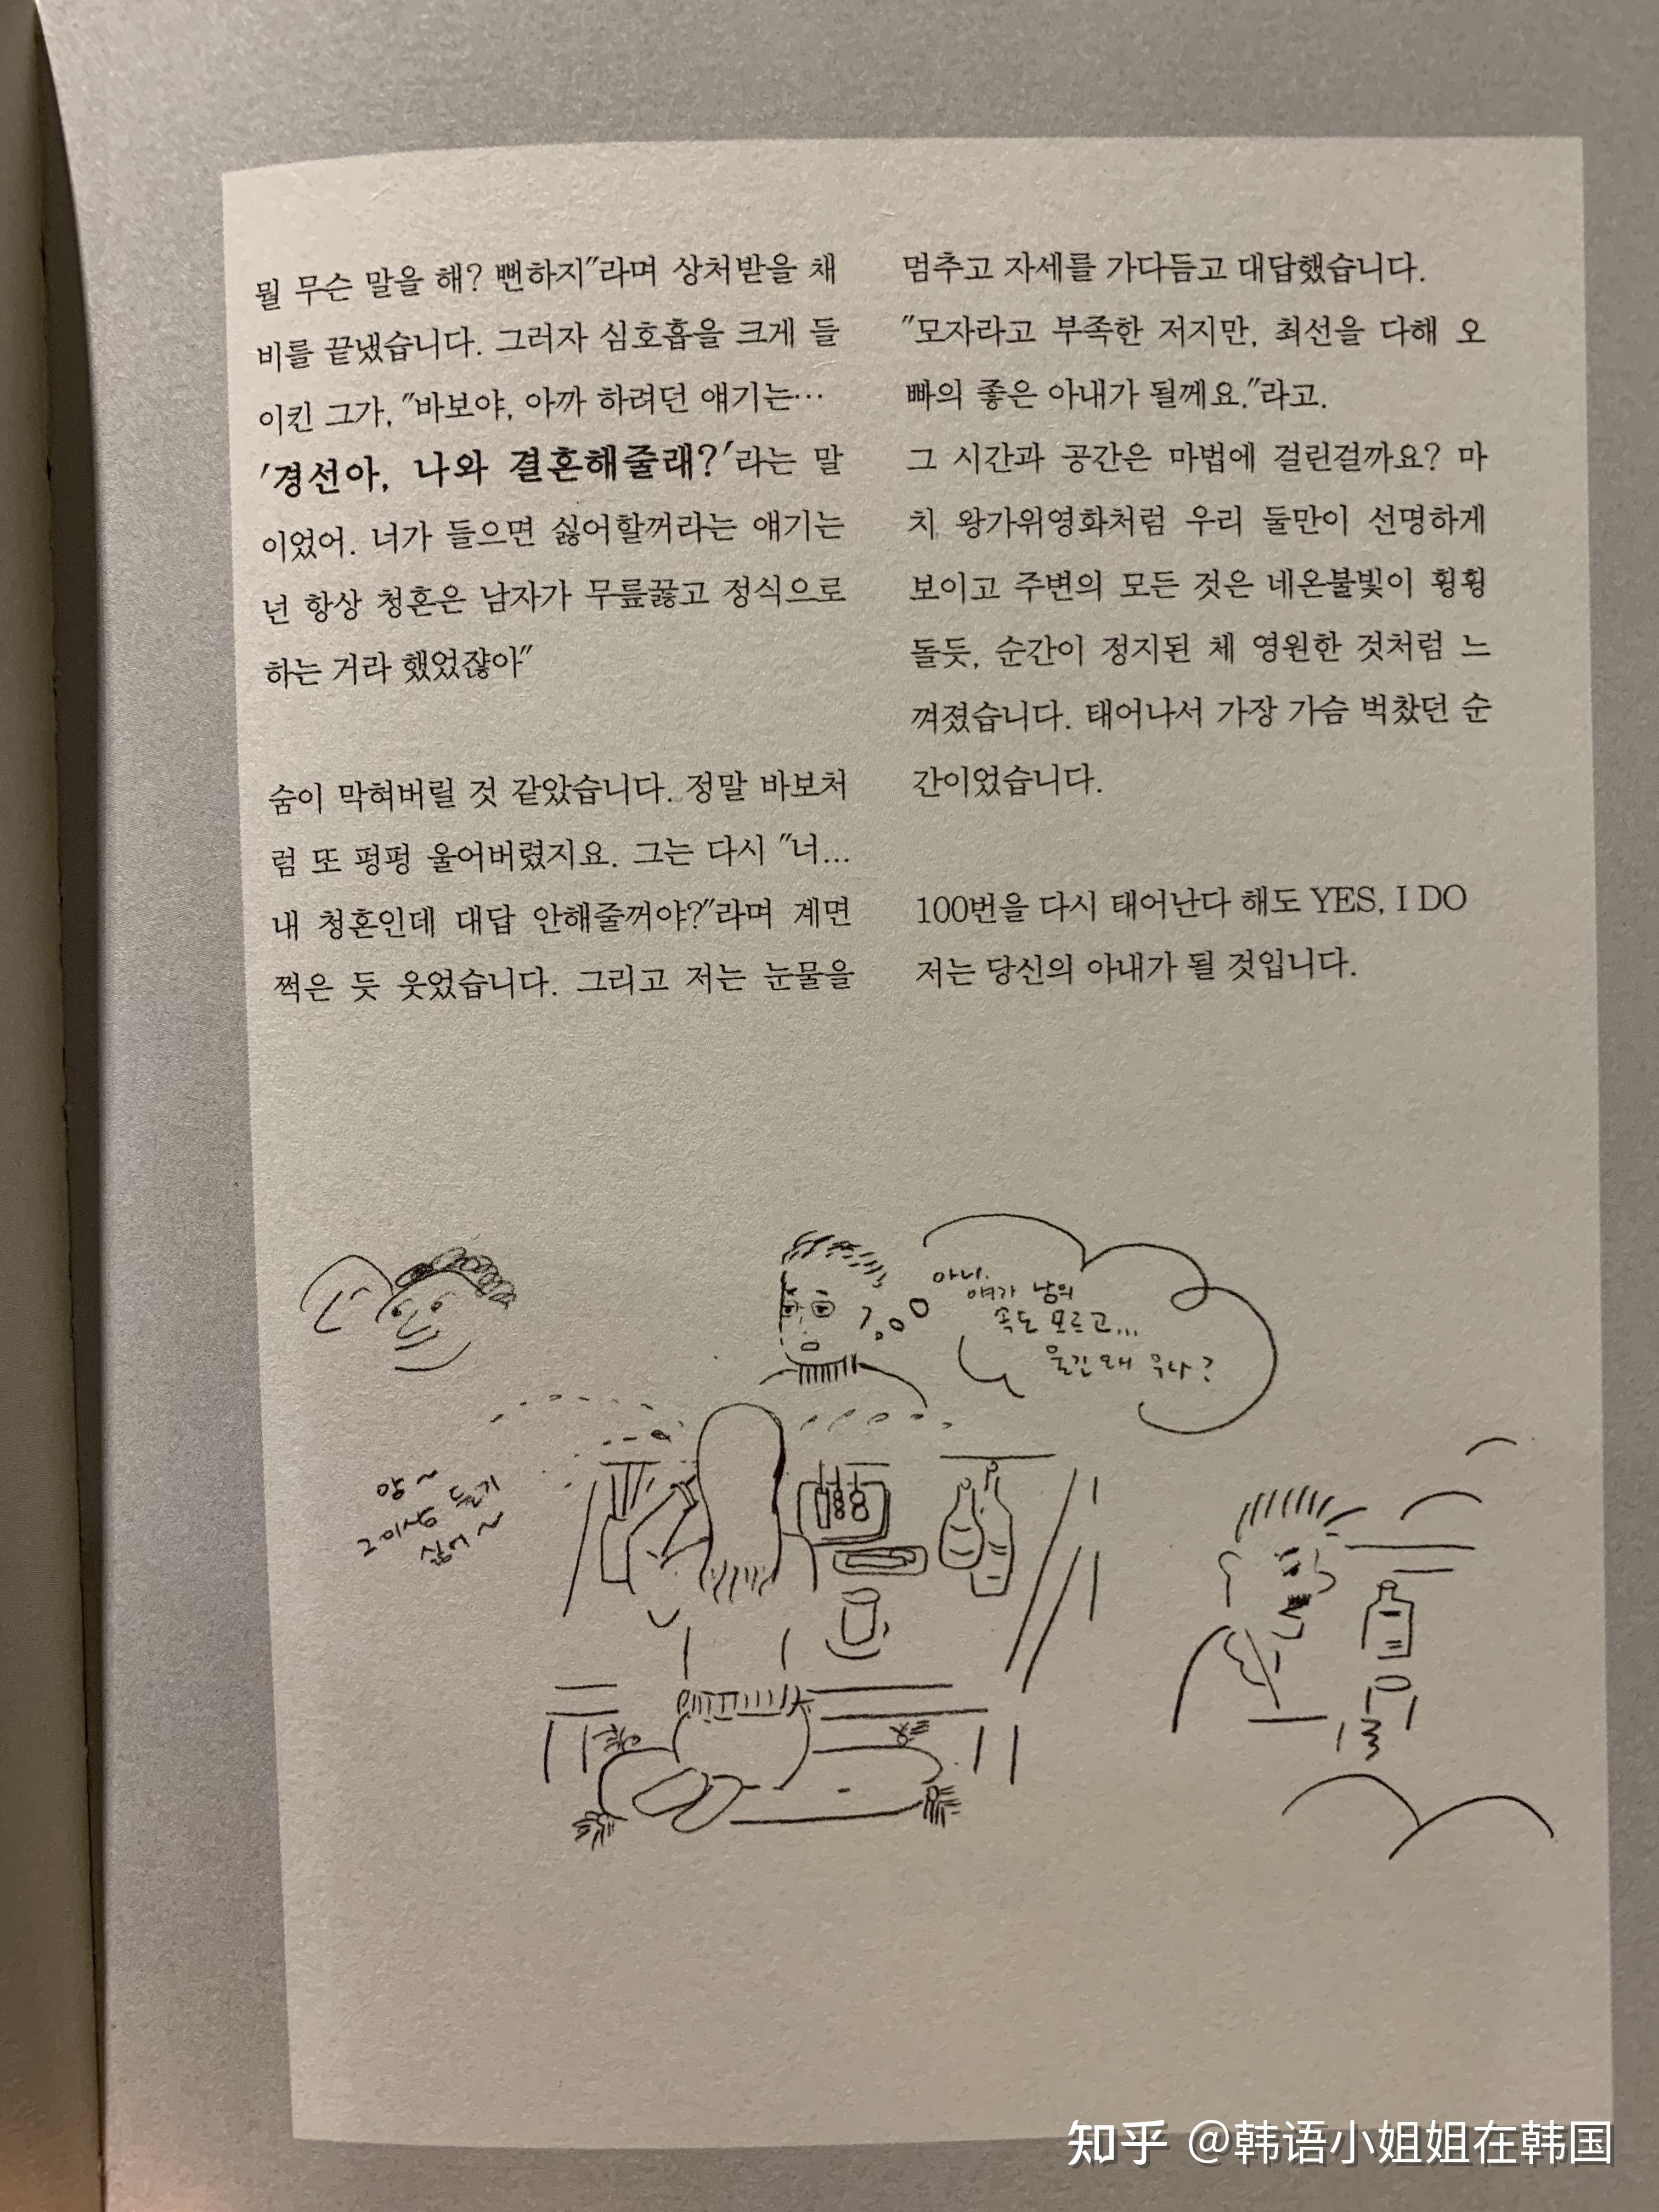 뭘 무슨 말을 해? 뻔하지"라며 상처받을 채
비를 끝냈습니다. 그러자 심호흡을 크게 들
이킨 그가, "바보야, 아까 하려던 얘기는…
'경선아, 나와 결혼해줄래?'라는 말
이었어. 너가 들으면 싫어할꺼라는 얘기는
넌 항상 청혼은 남자가 무릎꿇고 정식으로
하는 거라 했었쟎아"
숨이 막혀버릴 것 같았습니다. 정말 바보처
럼 또 펑펑 울어버렸지요. 그는 다시 "너...
내 청혼인데 대답 안해줄꺼야?"라며 계면
쩍은 듯 웃었습니다. 그리고 저는 눈물을
멈추고 자세를 가다듬고 대답했습니다.
"모자라고 부족한 저지만, 최선을 다해 오
빠의 좋은 아내가 될께요."라고.
그 시간과 공간은 마법에 걸린걸까요? 마
치 왕가위영화처럼 우리 둘만이 선명하게
보이고 주변의 모든 것은 네온불빛이 휭휭
돌듯, 순간이 정지된 체 영원한 것처럼 느
껴졌습니다. 태어나서 가장 가슴 벅찼던 순
간이었습니다.
100번을 다시 태어난다 해도 YES, I DO
저는 당신의 아내가 될 것입니다.
아니.
얘가 남의
속도 모르고...
울긴 왜 우나?
앙~
그이상 듣기
싫어~
知乎 @韩语小姐姐在韩国